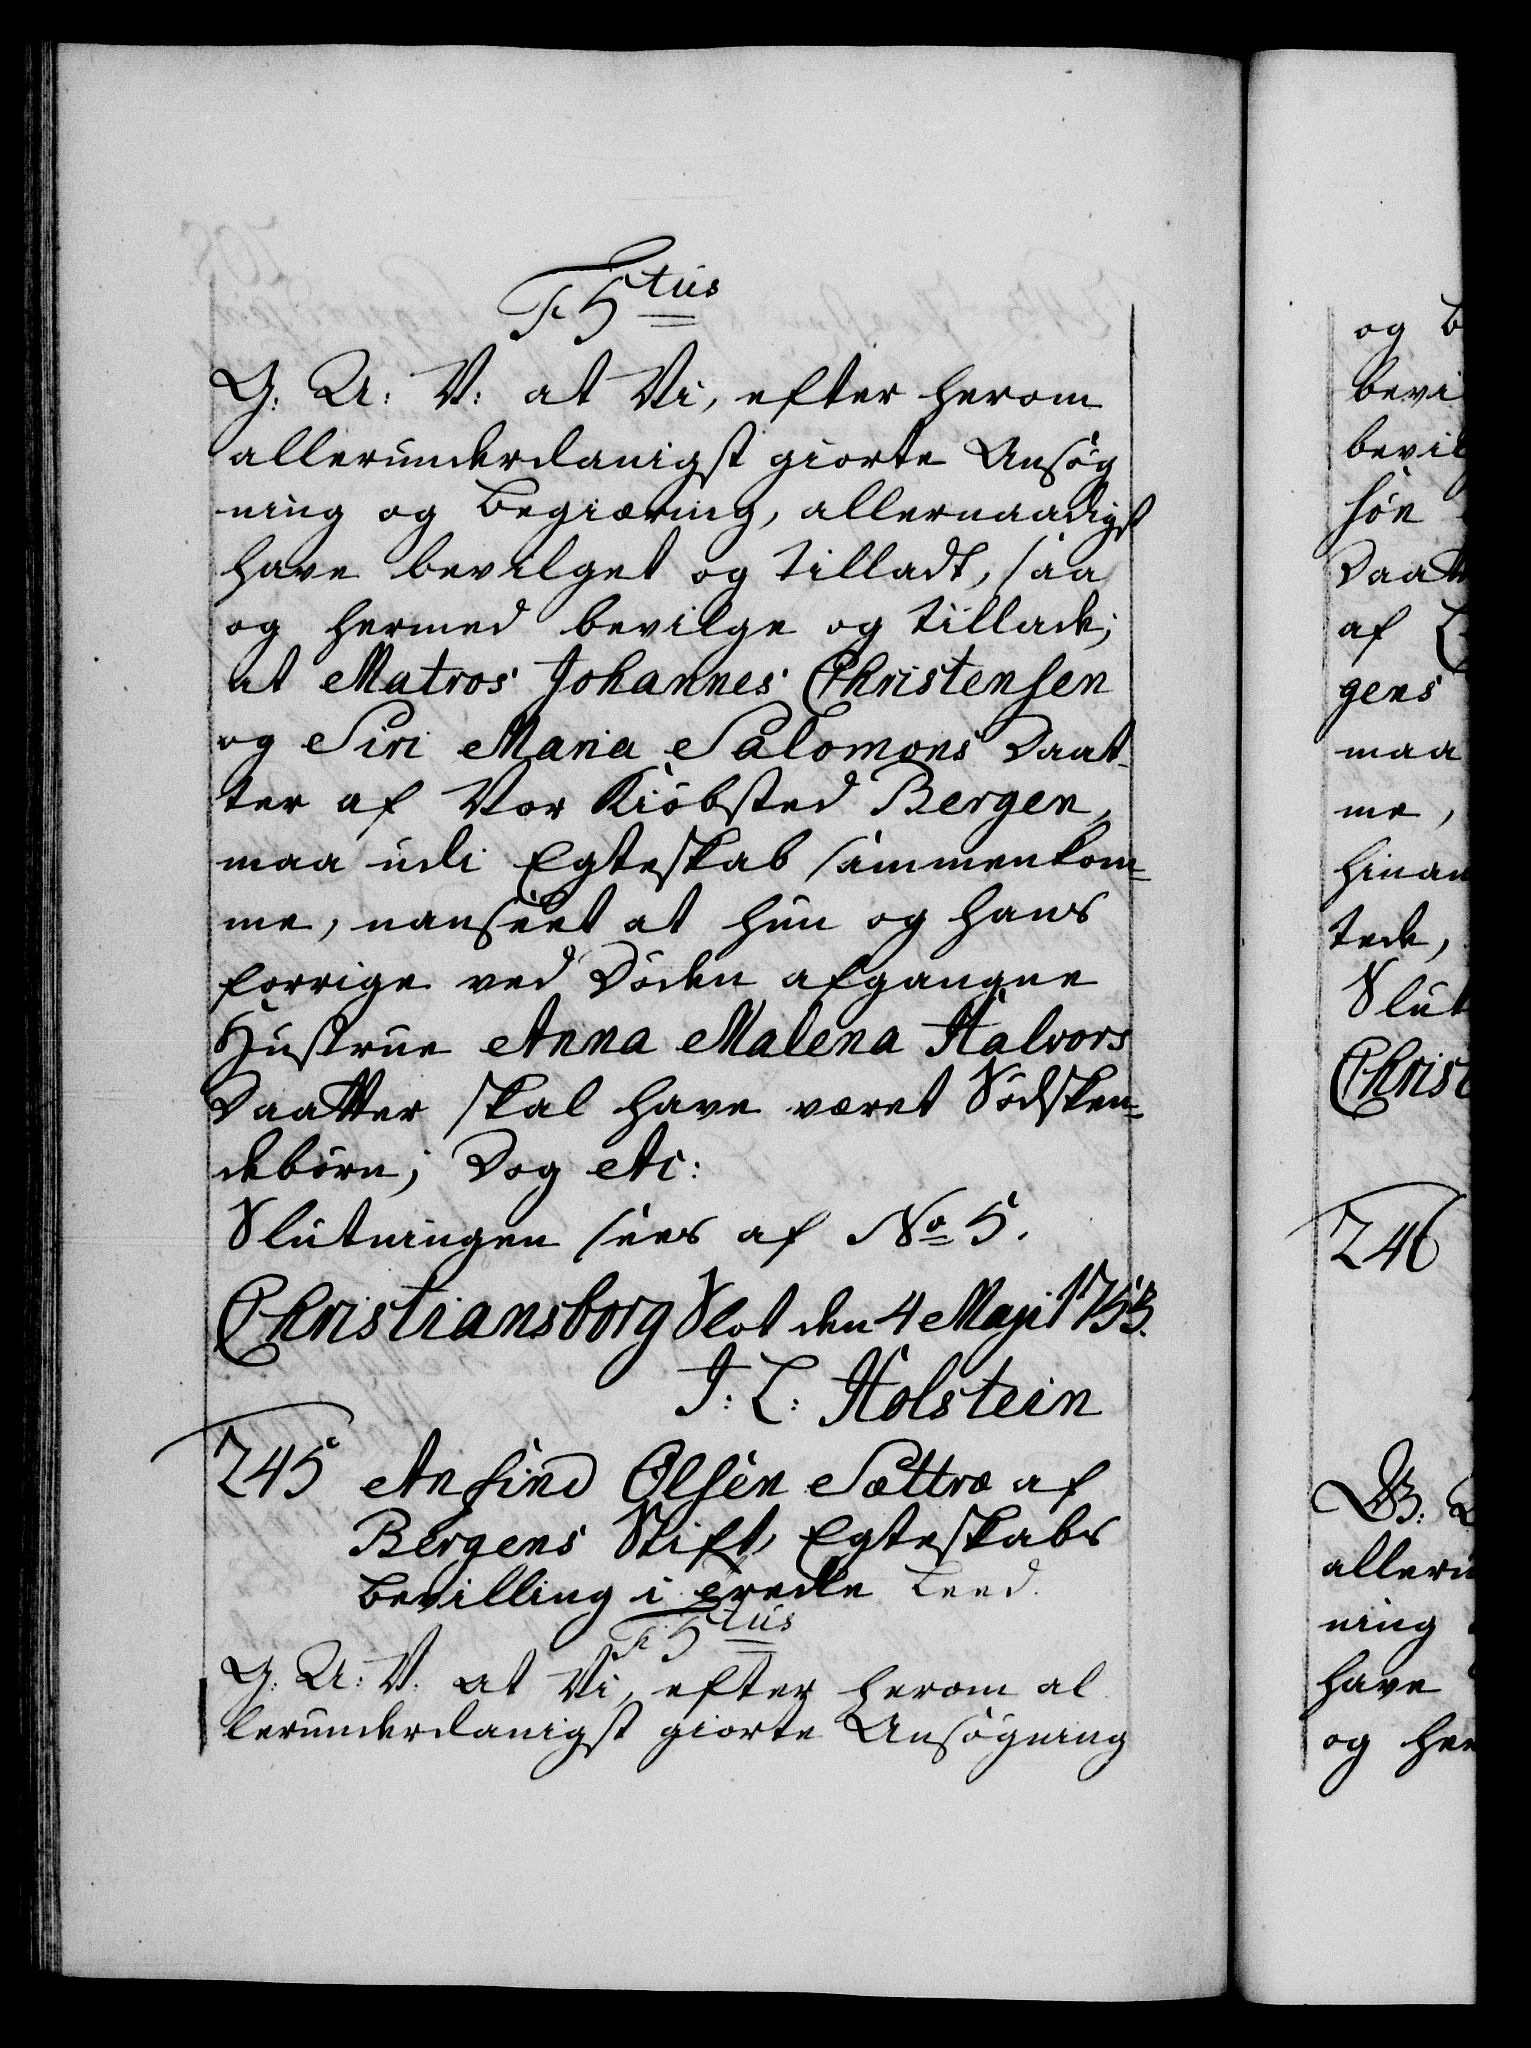 F 5tus
G: A: V: at Vi, efter herom
allerunderdanigst giorte Ansøg
ning og Begiæring, allernaadigst
have bevilget og tilladt, saa
og hermed bevilge og tillade;
at Matros Johannes Christensen
og Siri Maria Salomons Daat-
ter af Vor Kiøbsted Bergen,
maa udi Egteskab sammenkom-
me, uanseet at hun og hans
forrige ved Døden afgangne
Hustrue Anna Malena Halvors
Daatter skal have været Sødsken-
debørn; Dog etc:
Slutningen sees af No 5.
Christiansborg Slot den 4 Maji 1753.
J: L: Holstein
245 Anfind Olsen Sættre af
Bergens Stift, Egteskabs
Bevilling i tredie Leed.
F 5tus
G: A: V: at Vi, efter herom al
lerunderdanigst giorte Ansøgning
og B
bevi
bevil
søn
Daatt
af
gens
maa
me,
hinan
tede,
Slut
Christ
246
G:
alleru
ning
have
og her